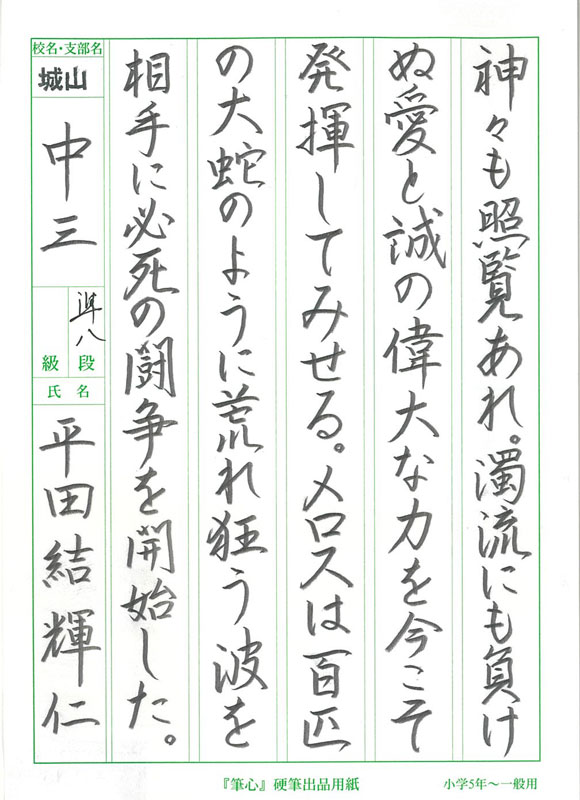 神々も照覧あれ。濁流にも負け
ぬ愛と誠の偉大な力を今こそ
発揮してみせる。メロスは百匹
の大蛇のように荒れ狂う波を
相手に必死の闘争を開始した。
校名・支部名
城山
中三
準八
段
級
氏名
平田結輝仁
『筆心』硬筆出品用紙
小学5年〜一般用